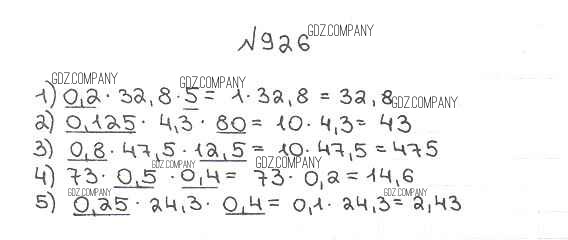 №926 GDZ.COMPANY
GDZ.COMPANY GDZ.COMPANY
1) 0,2 · 32,8 · 5 = 1 · 32,8 = 32,8 GDZ.COMPANY
2) 0,125 · 4,3 · 80 = 10 · 4,3 = 43
3) 0,8 · 47,5 · 12,5 = 10 · 47,5 = 475
GDZ.COMPANY GDZ.COMPANY
4) 73 · 0,5 · 0,4 = 73 · 0,2 = 14,6
GDZ.COMPANY GDZ.COMPANY
5) 0,25 · 24,3 · 0,4 = 0,1 · 24,3 = 2,43